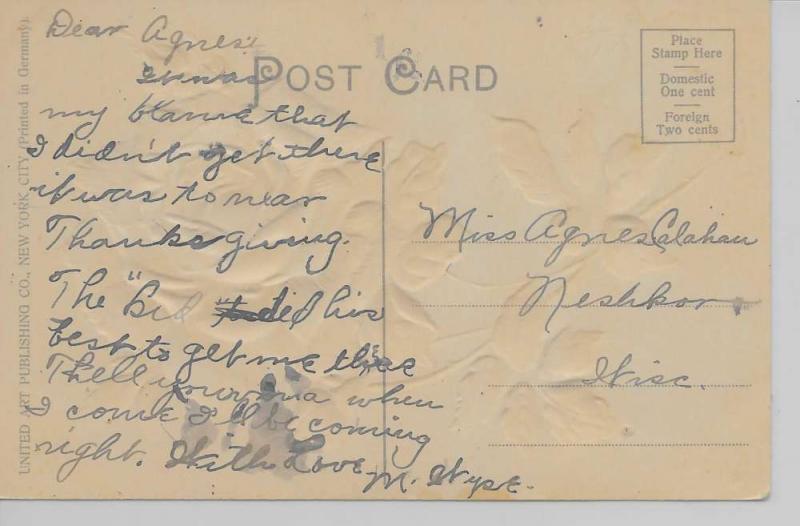 UNITED ART PUBLISHING CO., NEW YORK CITY (Printed in Germany).
POST CARD
Place
Stamp Here
Domestic
One cent
Foreign
Two cents
Dear Agnes:
It was
my blame that
I didn't get there
it was to near
Thanksgiving.
The "Bed did his
best to get me there
Thell your ma when
I come I'll be coming
right. With Love
M. Wyse.
Miss Agnes Calahan
Neshkor
Wisc.